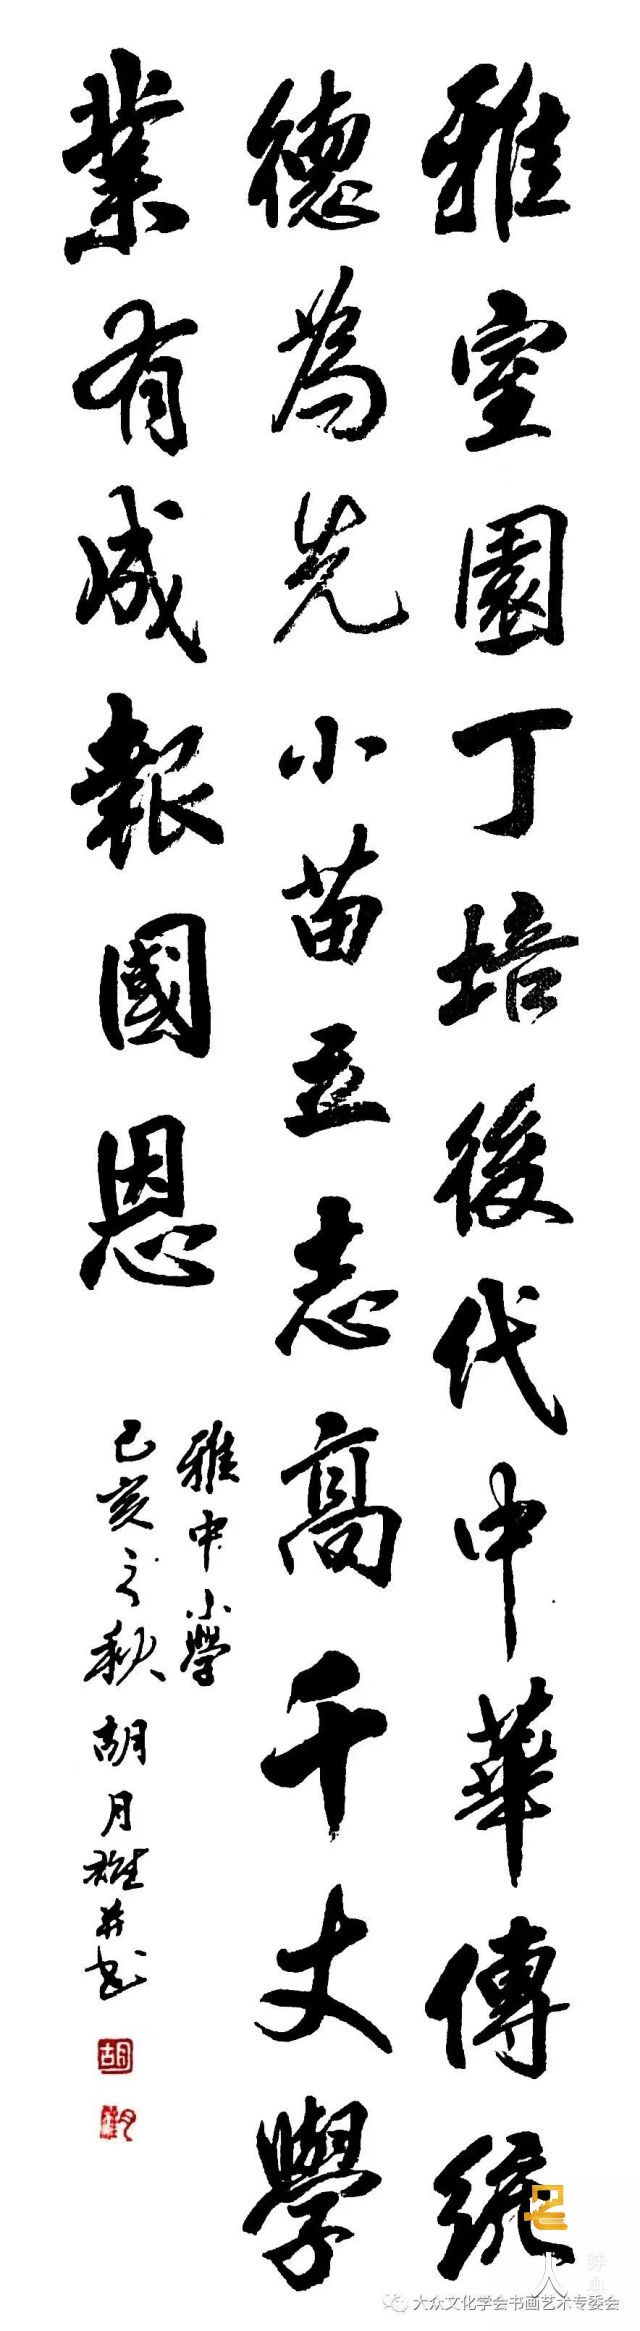 雅室園丁培後代中華傳統
德為先小苗立志高千丈學
業有成報國恩
雅中小學
己亥之秋胡月雄并書
胡
大众文化学会书画艺术专委会
名人
辞典